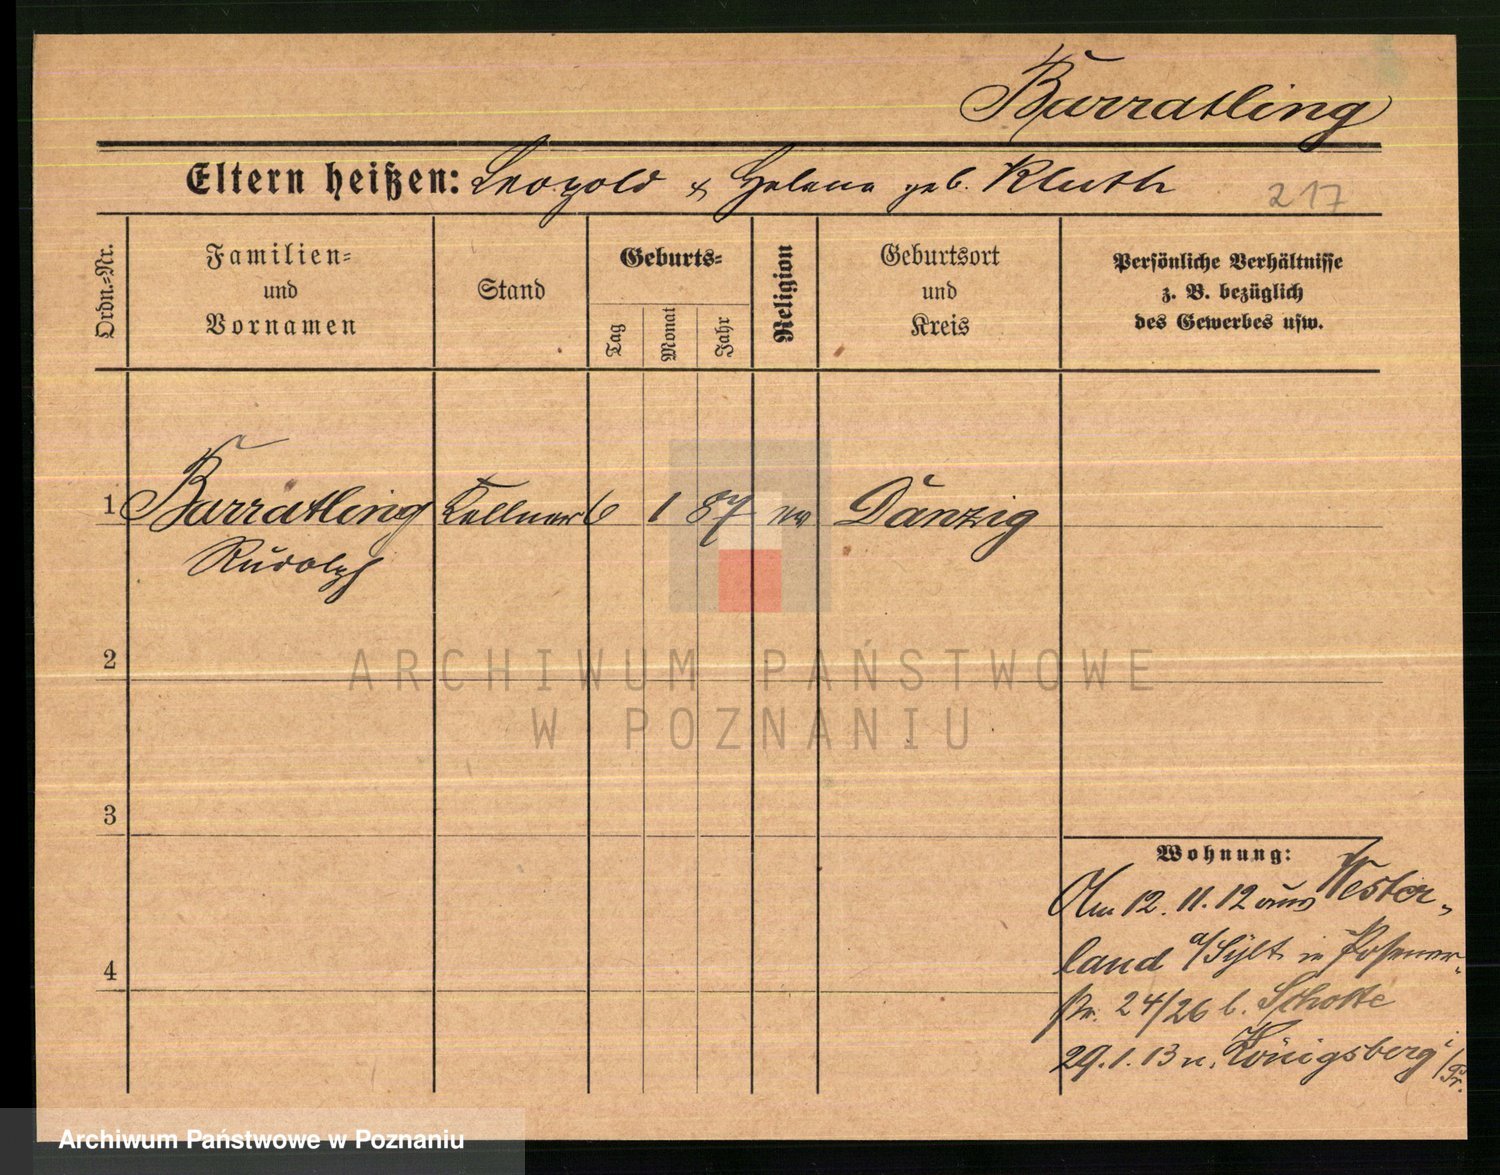 Barratling
Eltern heißen: Leopold & Helene geb. Kluth
217
Ordn.-Nr.
Familien-
und
Vornamen
Stand
Geburts-
Tag
Monat
Jahr
Religion
Geburtsort
und
Kreis
Persönliche Verhältnisse
z. B. bezüglich
des Gewerbes usw.
1 Barratling Kellner 6 1 87 ev Danzig
Rudolph
2
ARCHIWUM PAŃSTWOWE
W POZNANIU
3
Wohnung:
Am 12. 11. 12 aus Wester-
land a/Sylt in Posener-
str. 24/26 b. Scholte
4
29. 1. 13 n. Königsberg i/Pr.
Archiwum Państwowe w Poznaniu